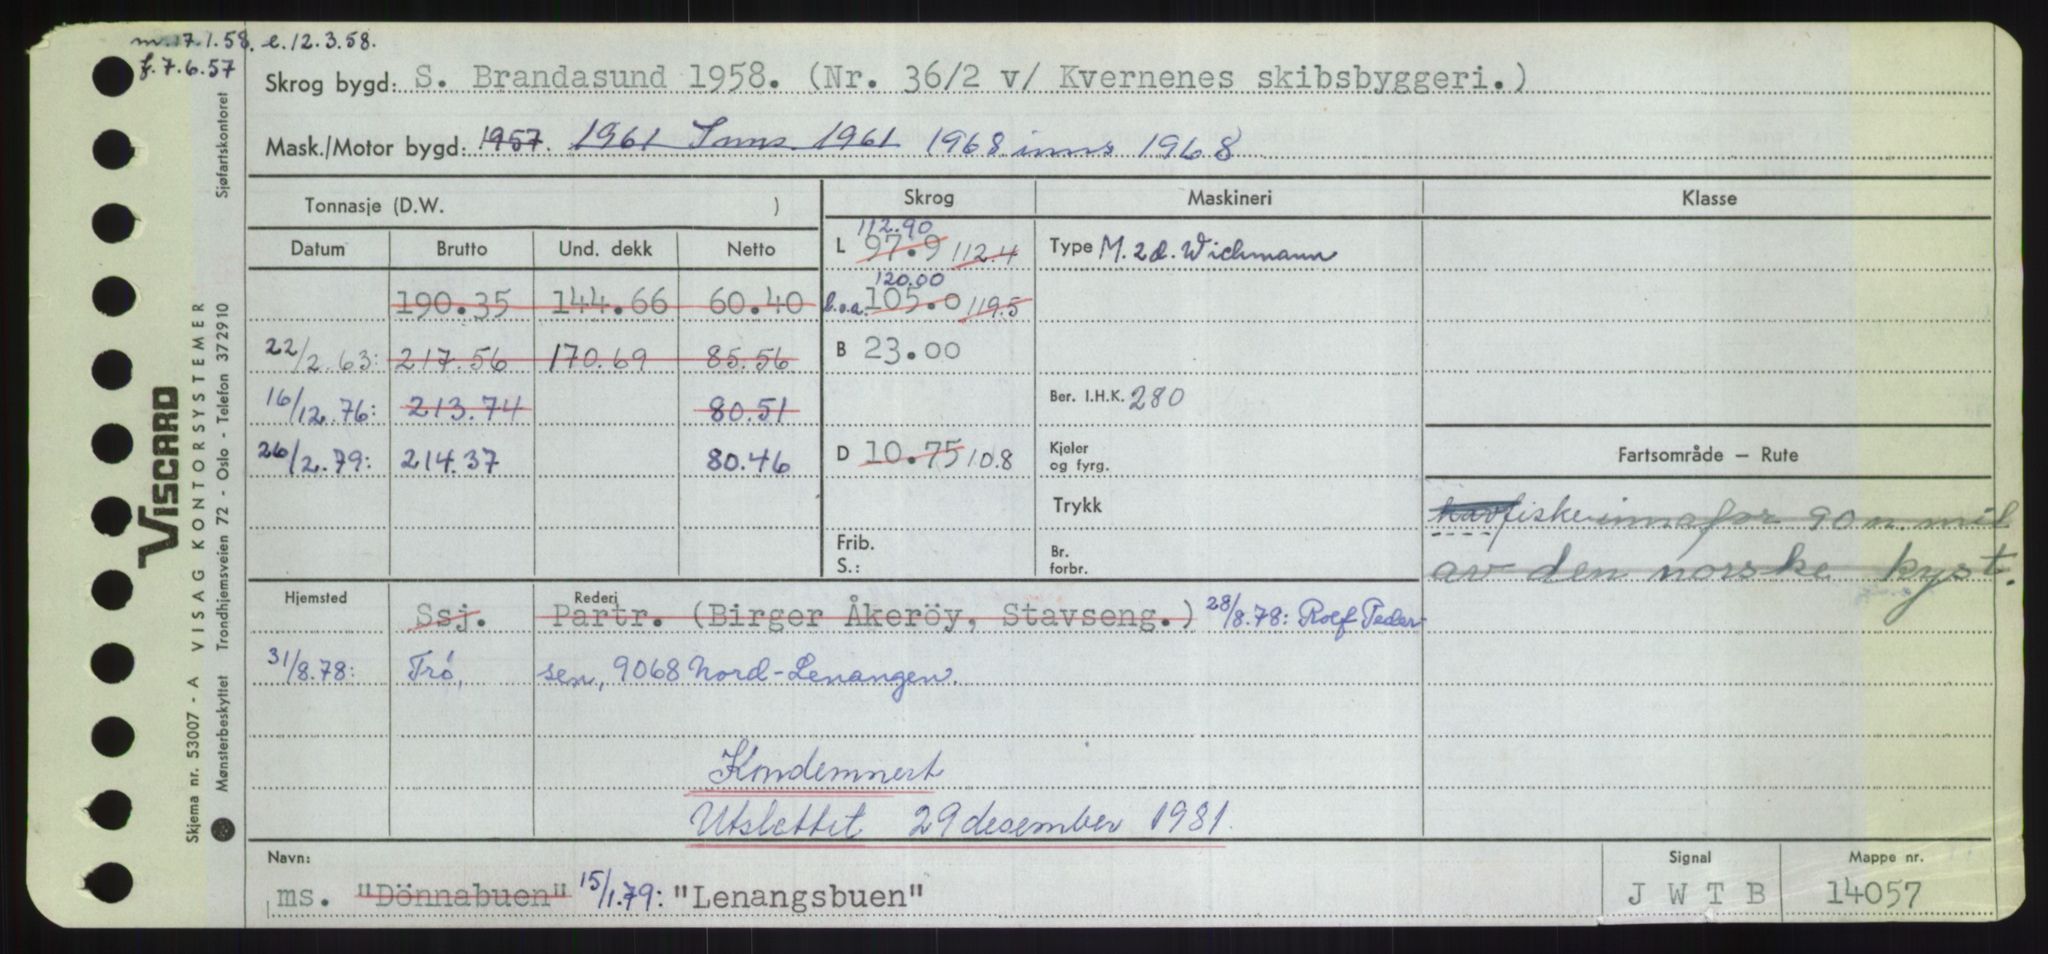 m. 17.1.58. e. 12.3.58.
f. 7.6.57
Skrog bygd: S. Brandasund 1958. (Nr. 36/2 v/ Kvernenes skibsbyggeri.)
Mask./Motor bygd: 1957. 1961 Inns. 1961 1968 inns 1968
Tonnasje (D.W. ) Skrog Maskineri Klasse
Datum Brutto Und. dekk Netto L 112.90 97.9 112.4 Type M. 2 d. Wichmann
190.35 144.66 60.40 l.o.a. 120.00 105.0 119.5
22/2.63: 217.56 170.69 85.56 B 23.00
16/12.76: 213.74 80.51 Ber. I.H.K. 280
26/2.79: 214.37 80.46 D 10.75 10.8 Kjeler og fyrg. Fartsområde – Rute
Trykk havfiske innafor 90 n. mil
Frib. S.: Br. forbr. av den norske kyst.
Hjemsted Rederi
Ssj. Partr. (Birger Åkeröy, Stavseng.) 28/8.78: Rolf Peder-
31/8.78: Trö, sen, 9068 Nord-Lenangen.
Kondemnert
Utslettet 29 desember 1981.
Navn: Signal Mappe nr.
ms. "Dönnabuen" 15/1.79: "Lenangsbuen" J W T B 14057
VISCARD
Skjema nr. 53007 - A VISAG KONTORSYSTEMER
Mønsterbeskyttet Trondhjemsveien 72 - Oslo - Telefon 372910 Sjøfartskontoret